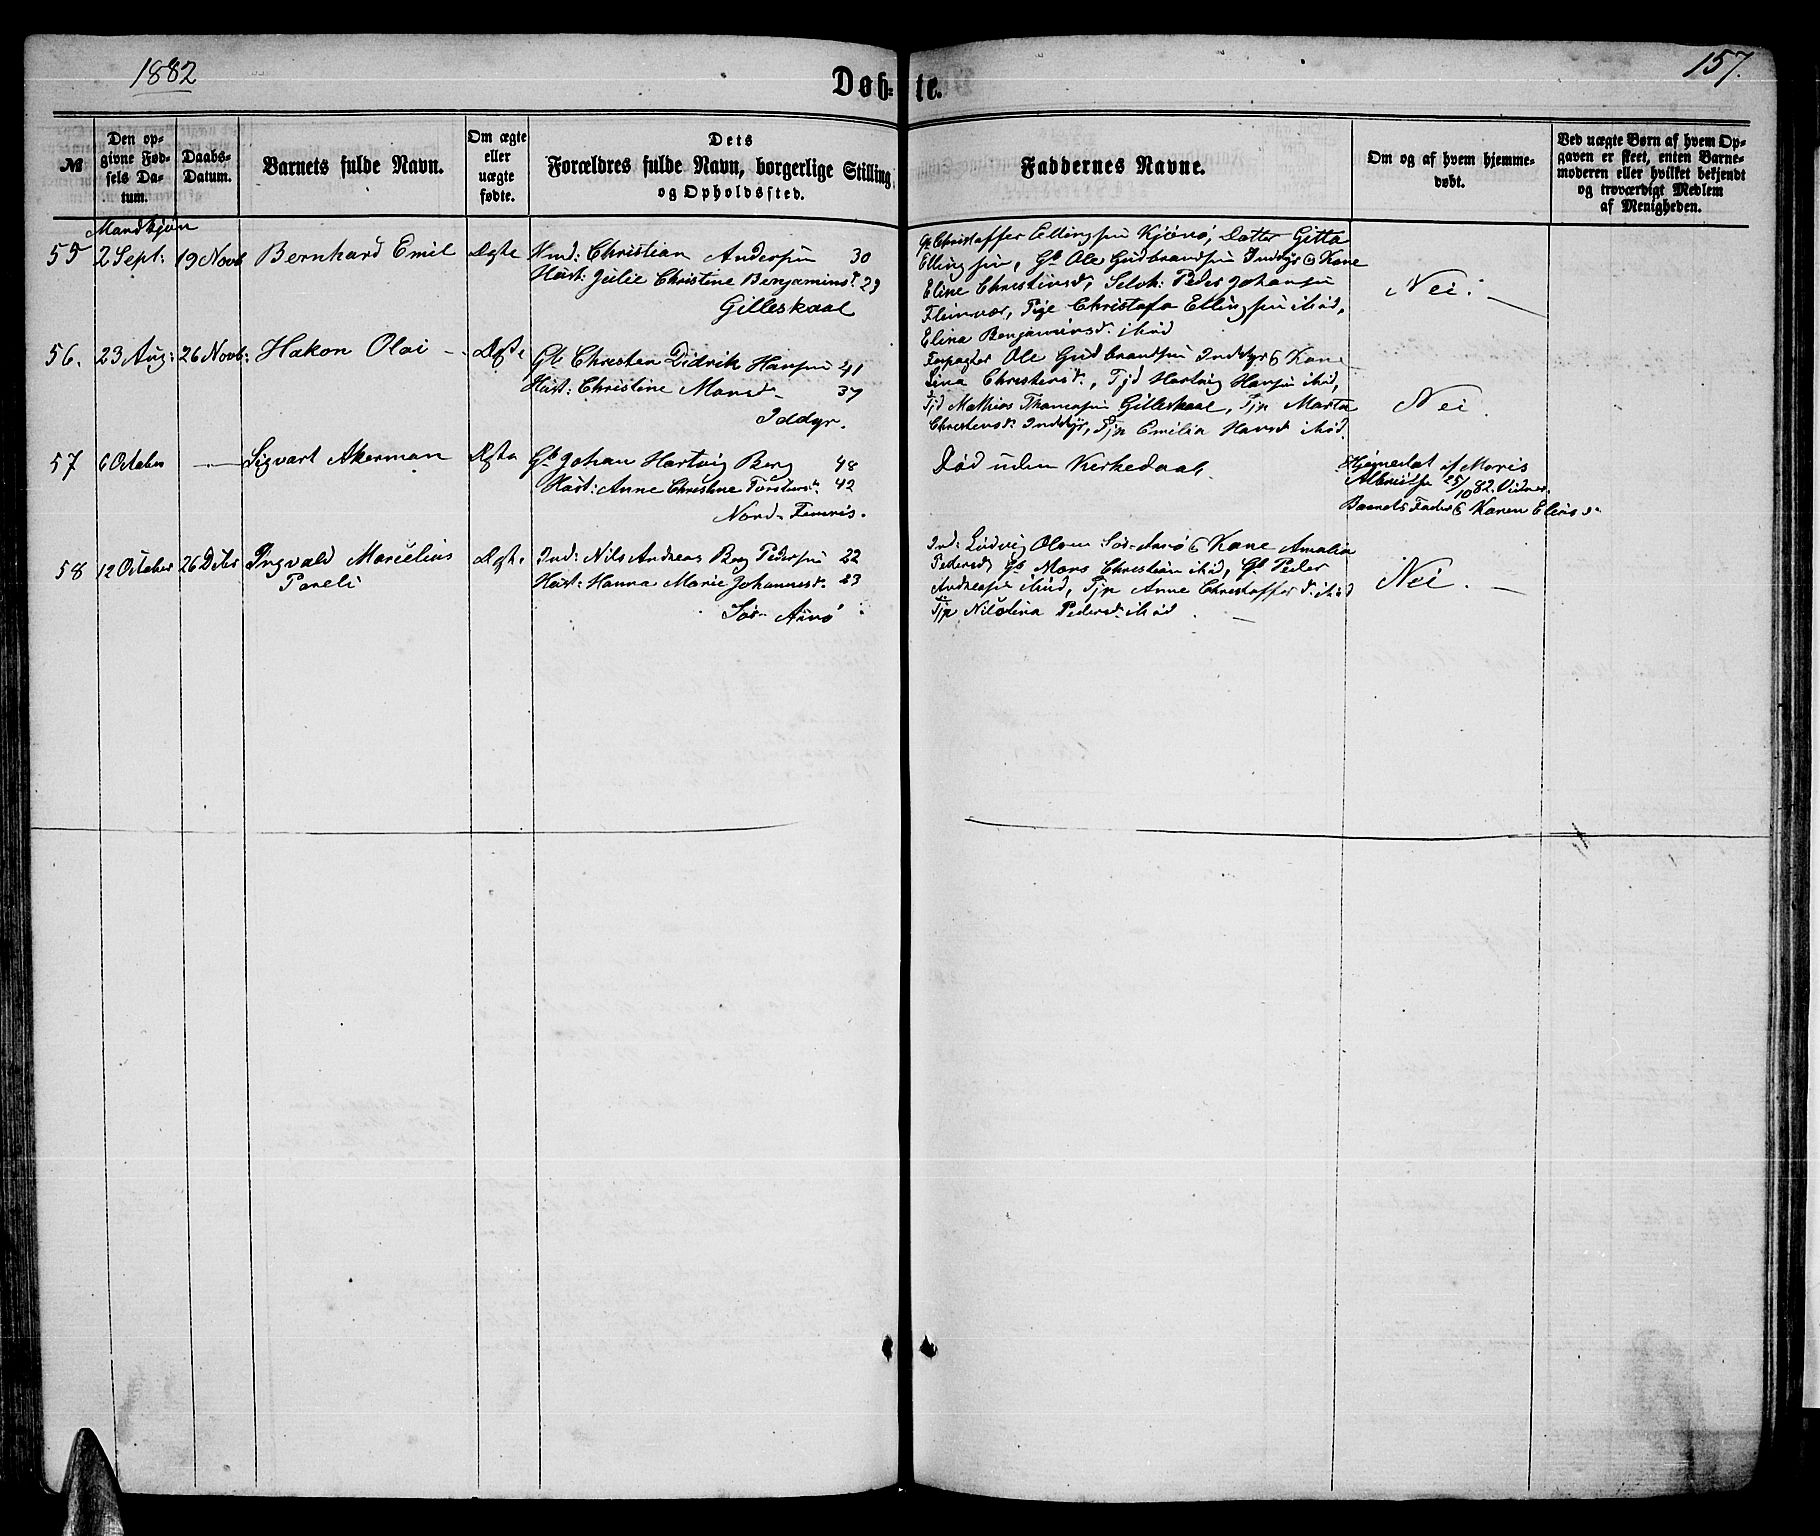 1882
157.
Døb-te.
№
Den op-
givne Fød-
sels Da-
tum.
Daabs-
Datum.
Barnets fulde Navn.
Om ægte
eller
uægte
fødte.
Dets
Forældres fulde Navn, borgerlige Stilling
og Opholdssted.
Faddernes Navne.
Om og af hvem hjemme-
døbt.
Ved uægte Børn af hvem Op-
gaven er skeet, enten Barne-
moderen eller hvilket bekjendt
og troværdigt Medlem
af Menigheden.
Mandkjøn
55 2 Sept: 19 Novb Bernhard Emil Ægte
Christian Andersen 30
Hust: Julie Christine Benjaminsd 29
Gilleskaal
Christoffer Ellingsen Kjønø, Datter Gitta
Ellingsen, Gb Ole Gudbrandsen Inddyr & Kone
Eline Christensd, Selvh: Peder Johansen
Fleinvær, Pige Christofa Ellingsen ibid,
Elina Benjaminsd. ibid
Nei. —
56. 23 Aug: 26 Novb: Hakon Olai — Ægte
Gb Christen Didrik Hansen 41
Hust: Christine Monsd 37
Inddyr.
Forpagter Ole Gudbrandsen Inddyr & Kone
Lina Christensd., Tjd Hartvig Hansen ibid,
Tjd Mathias Thomassen Gilleskaal, Tjp Marta
Christensd. Inddyr, Tjp Emilia Hansd ibid.
Nei.
57 6 October — Sigvart Akerman Ægte
Gb Johan Hartvig Berg 48
Hust: Anne Christine Torstensd. 42
Nord-
Død uden Kirkedaab.
Hjemmedøbt af Moris
25/10 82. Vidner
Barnets Fader & Karen
58 12 October 26 Dcbr Ingvald Marcelius
Pareli
Ægte
Ind: Nils Andreas Berg Pedersen 22
Hust: Hanna Marie Johannesd. 23
Sør Arnø
Ind: Ludvig Olsen Sør-Arnø & Kone Amalia
Pedersd, Gb Mons Christian ibid, Gb Peder
Andreasen ibid, Tjp Anne Christoffersd. ibid
Tjp. Nikolina Pedersd. ibid.
Nei. —